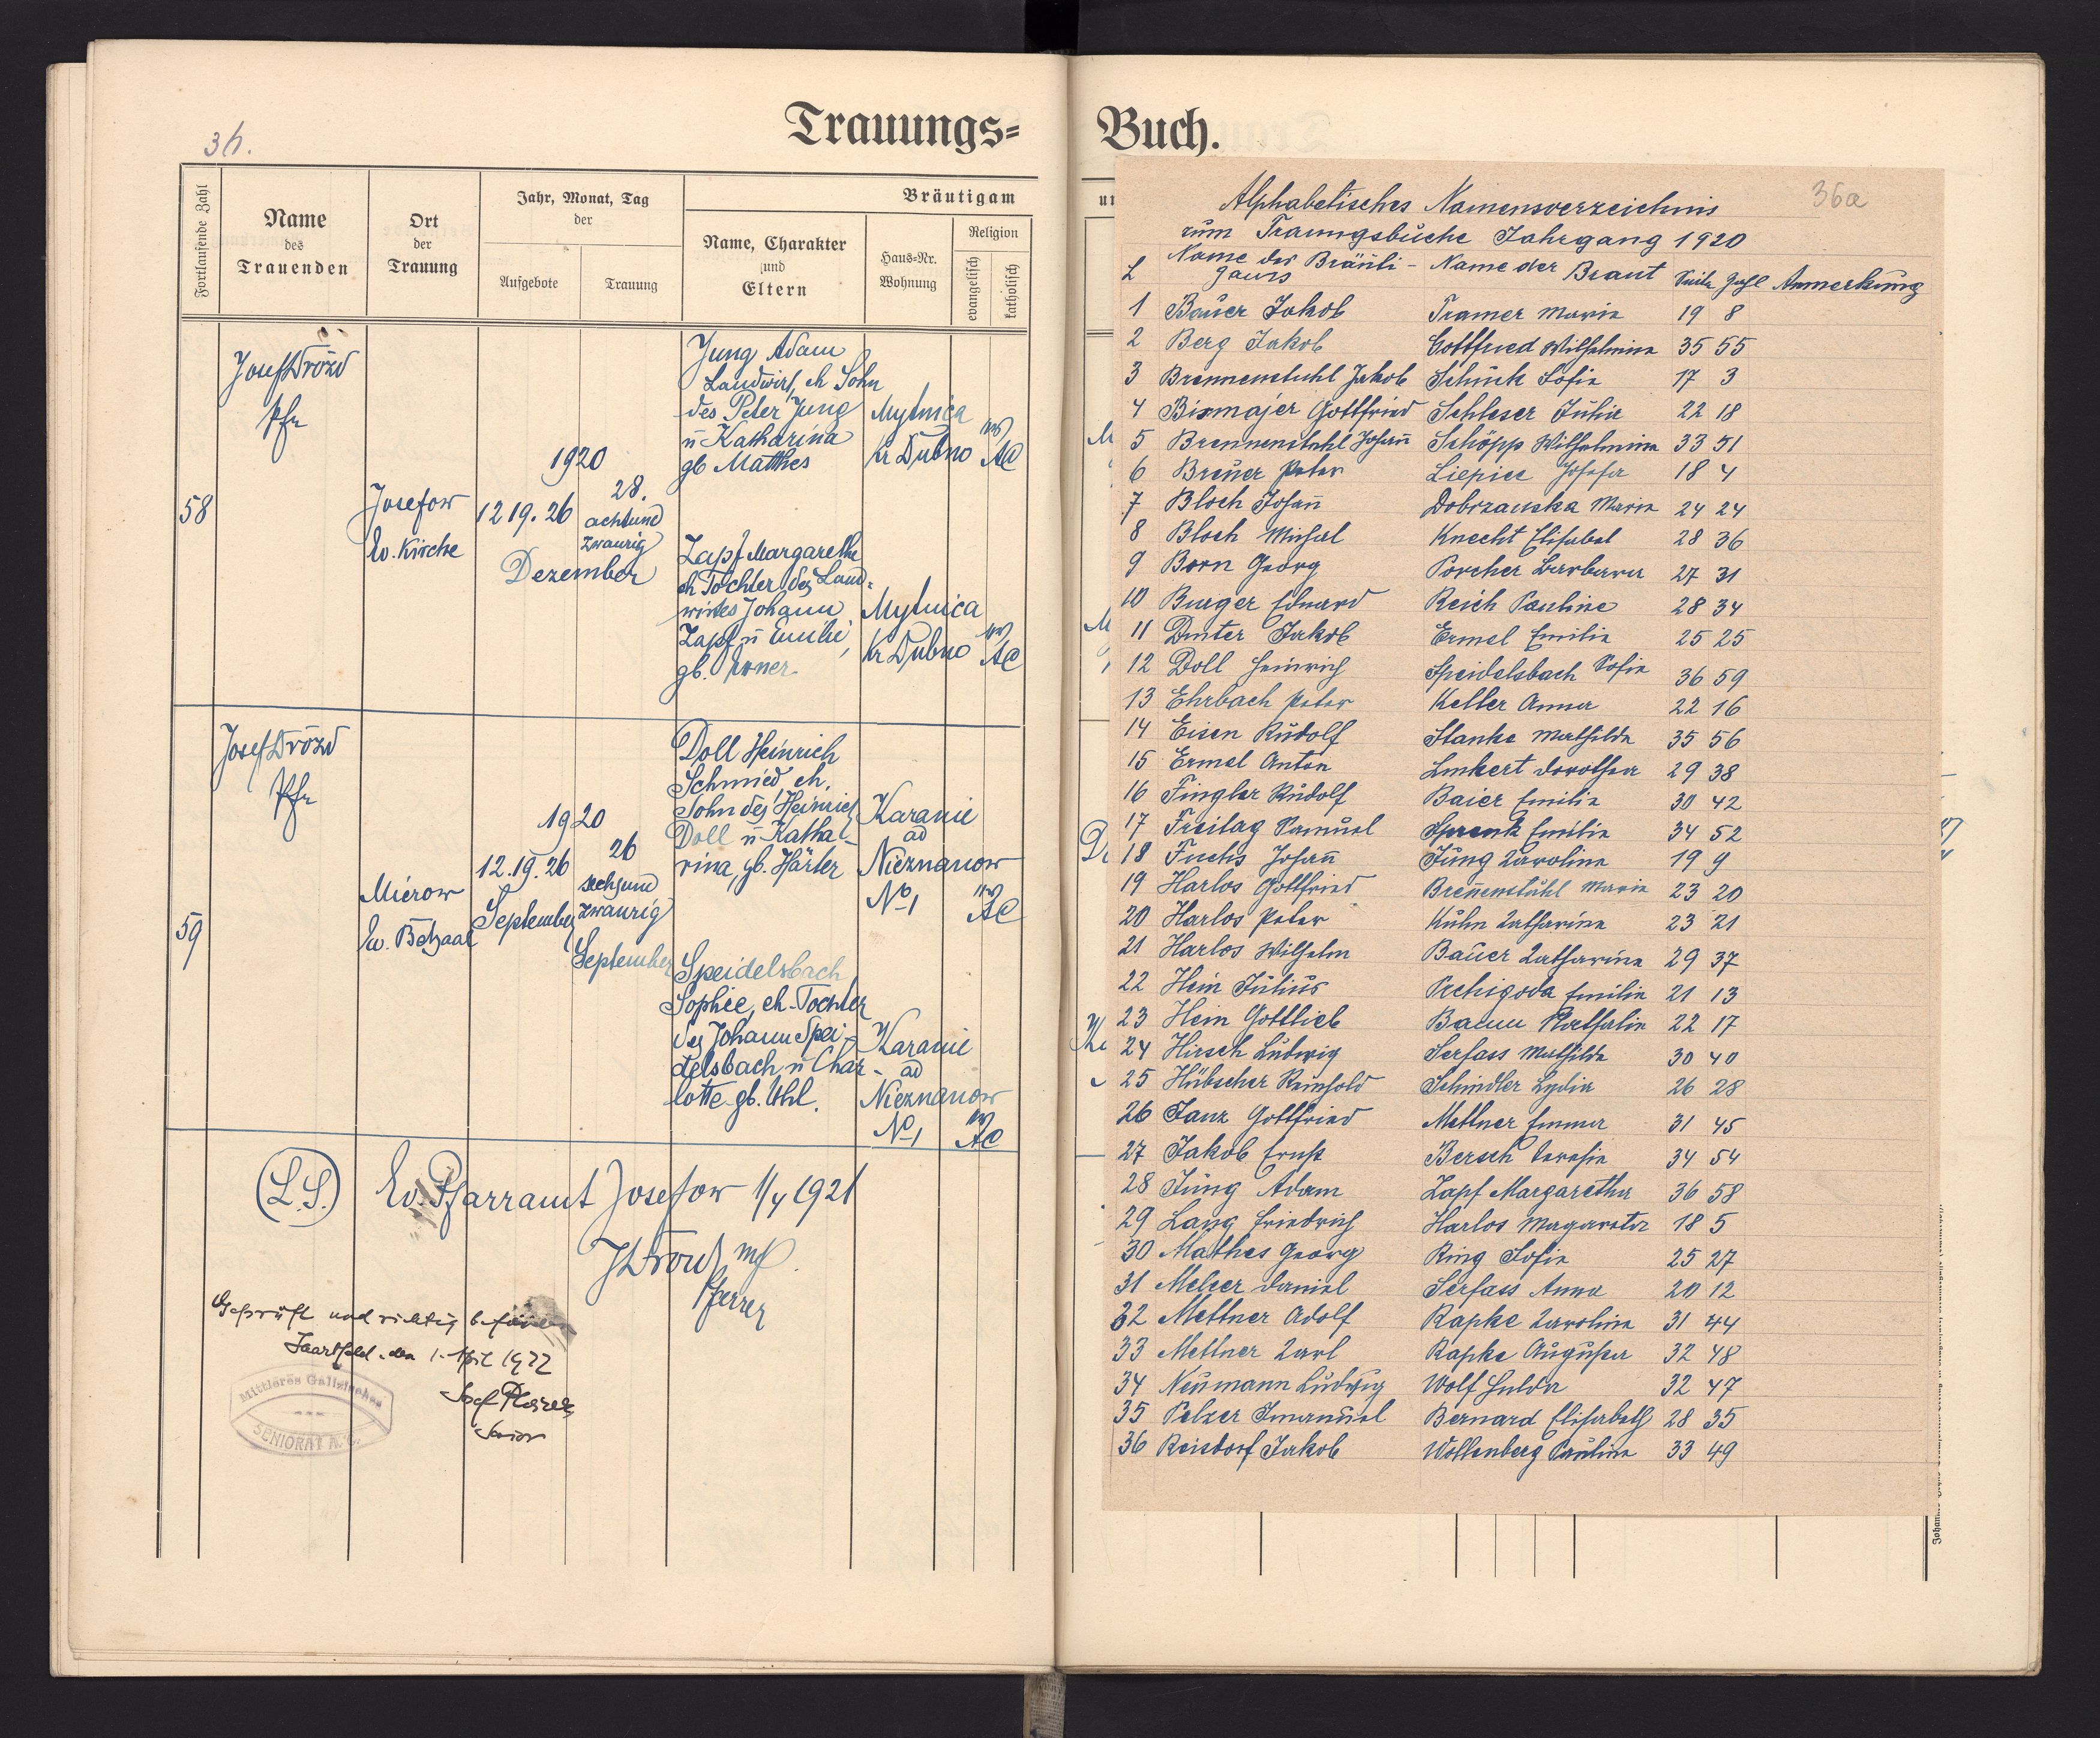 36.
Trauungs=
Fortlaufende Zahl
Name
des
Trauenden
Ort
der
Trauung
Jahr, Monat, Tag
der
Aufgebote
Trauung
Bräutigam
Name, Charakter
und
Eltern
Haus=Nr.
Wohnung
Religion
evangelisch
katholisch
58
Josef Drozd
Pfr
Josefow
Ev. Kirche
1920
12 19. 26
28.
achtund
zwanzig
Dezember
Jung Adam
Landwirt, eh Sohn
des Peter Jung
u Katharina
gb Matthes
Mytnica
Kr Dubno
AC
Zapf Margarethe
eh Tochter des Land=
wirtes Johann
Zapf u Emilie,
gb.
Mytnica
Kr Dubno
AC
59
Josef Drozd
Pfr
Mierow
Ev. Betsaal
1920
12. 19. 26
September
26
sechsund
zwanzig
September
Doll Heinrich
Schmied eh.
Sohn des Heinrich
Doll u Katha-
rina, gb. Härter
Karanie
ad
Nieznanow
No 1
AC
Speidelsbach
Sophie, eh. Tochter
des Johann Spei-
delsbach u Char-
lotte gb. Uhl.
Karanie
ad
Nieznanow
No 1
AC
(L.S.) Ev. Pfarramt Josefow 1/4 1921
JDrozd mp.
Pfarrer
Geprüft und richtig befunden
den 1. April 1922
Josef
Senior
Mittleres Galizisches
SENIORAT A. C.
Buch.
36a
Alphabetisches Namensverzeichnis
zum Trauungsbuche Jahrgang 1920
L Name des Bräuti- Name der Braut Seite Zahl Anmerkung
gams
1 Bauer Jakob Tramer Maria 19 8
2 Berg Jakob Gottfried Wilhelmina 35 55
3 Brennenstuhl Jakob Schick Sofia 17 3
4 Bismajer Gottfried Schleser Julie 22 18
5 Brennenstuhl Johann Schöpp Wilhelmina 33 51
6 Breuer Peter Liepiec Josefa 18 4
7 Bloch Johann Dobrzanska Maria 24 24
8 Bloch Michael Knecht Elisabet 28 36
9 Born Georg Porcher Barbara 27 31
10 Burger Eduard Reich Pauline 28 34
11 Dinter Jakob Ermel Emilia 25 25
12 Doll Heinrich Speidelsbach Sofia 36 59
13 Ehrbach Peter Keller Anna 22 16
14 Eisen Rudolf Stanke Mathilda 35 56
15 Ermel Anton Linkert Dorothea 29 38
16 Fingler Rudolf Baier Emilia 30 42
17 Freitag Samuel Sprenk Emilia 34 52
18 Fuchs Johann Jung Karolina 19 9
19 Harlos Gottfried Brennenstuhl Maria 23 20
20 Harlos Peter Kuhn Katharina 23 21
21 Harlos Wilhelm Bauer Katharina 29 37
22 Hein Julius Prchigoda Emilia 21 13
23 Hein Gottlieb Baum Nathalia 22 17
24 Hirsch Ludwig Serfass Mathilda 30 40
25 Hübscher Reinhold Schindler Lydia 26 28
26 Janz Gottfried Mettner Emma 31 45
27 Jakob Ernst Bersch Teresia 34 54
28 Jung Adam Zapf Margaretha 36 58
29 Lang Friedrich Harlos Margareta 18 5
30 Mathes Georg Ring Sofia 25 27
31 Melzer Daniel Serfass Anna 20 12
32 Mettner Adolf Rapke Karolina 31 44
33 Mettner Karl Rapke Augusta 32 48
34 Neumann Ludwig Wolf Hulda 32 47
35 Pelzer Imanuel Bernard Elisabeth 28 35
36 Reisdorf Jakob Wollenberg Paulina 33 49